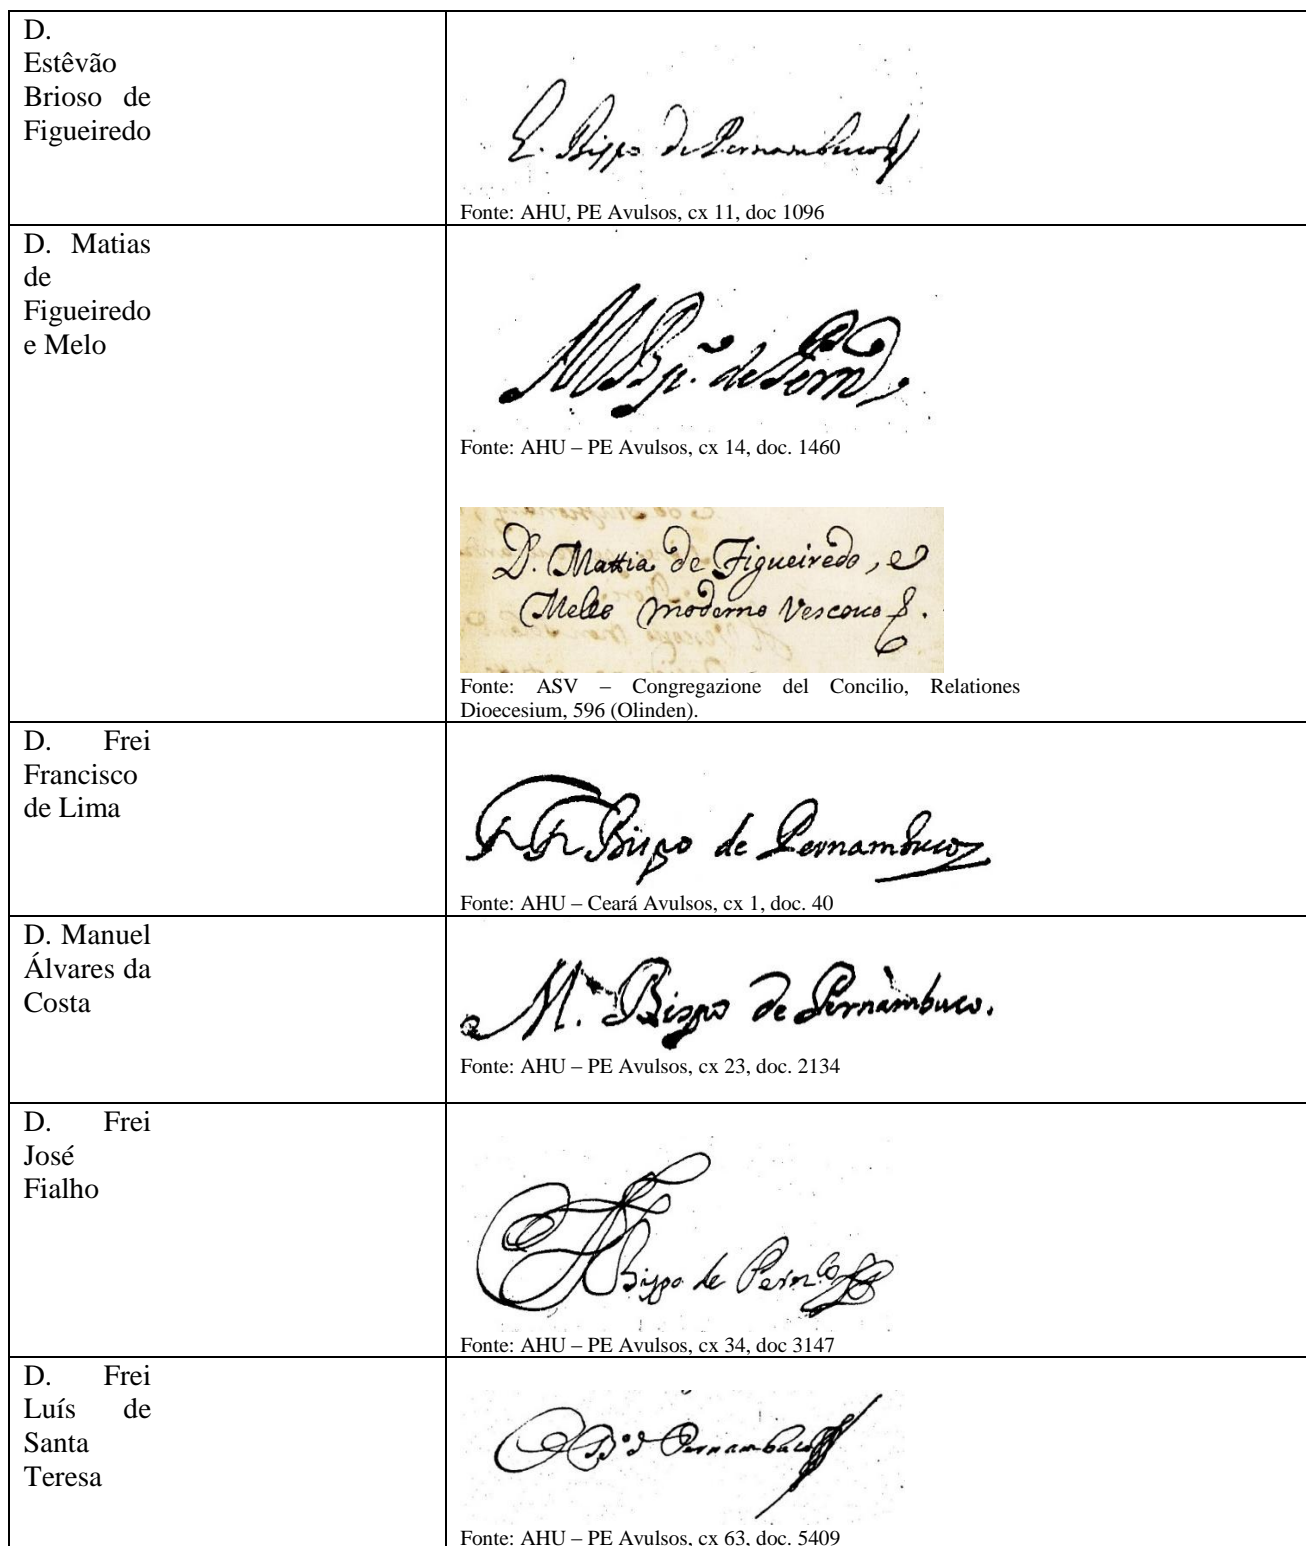 D.
Estêvão
Brioso de
Figueiredo
E. Bispo de Pernambuco
Fonte: AHU, PE Avulsos, cx 11, doc 1096
D. Matias
de
Figueiredo
e Melo
M Bp.º de Pern
Fonte: AHU – PE Avulsos, cx 14, doc. 1460
D. Mattia de Figueiredo, e
Mello moderno Vescouo
Fonte: ASV – Congregazione del Concilio, Relationes
Dioecesium, 596 (Olinden).
D. Frei
Francisco
de Lima
Fr Fr Bispo de Pernambuco
Fonte: AHU – Ceará Avulsos, cx 1, doc. 40
D. Manuel
Álvares da
Costa
M. Bispo de Pernambuco.
Fonte: AHU – PE Avulsos, cx 23, doc. 2134
D. Frei
José
Fialho
Bispo de Pern.co
Fonte: AHU – PE Avulsos, cx 34, doc 3147
D. Frei
Luís de
Santa
Teresa
B.º d Pernambuco
Fonte: AHU – PE Avulsos, cx 63, doc. 5409